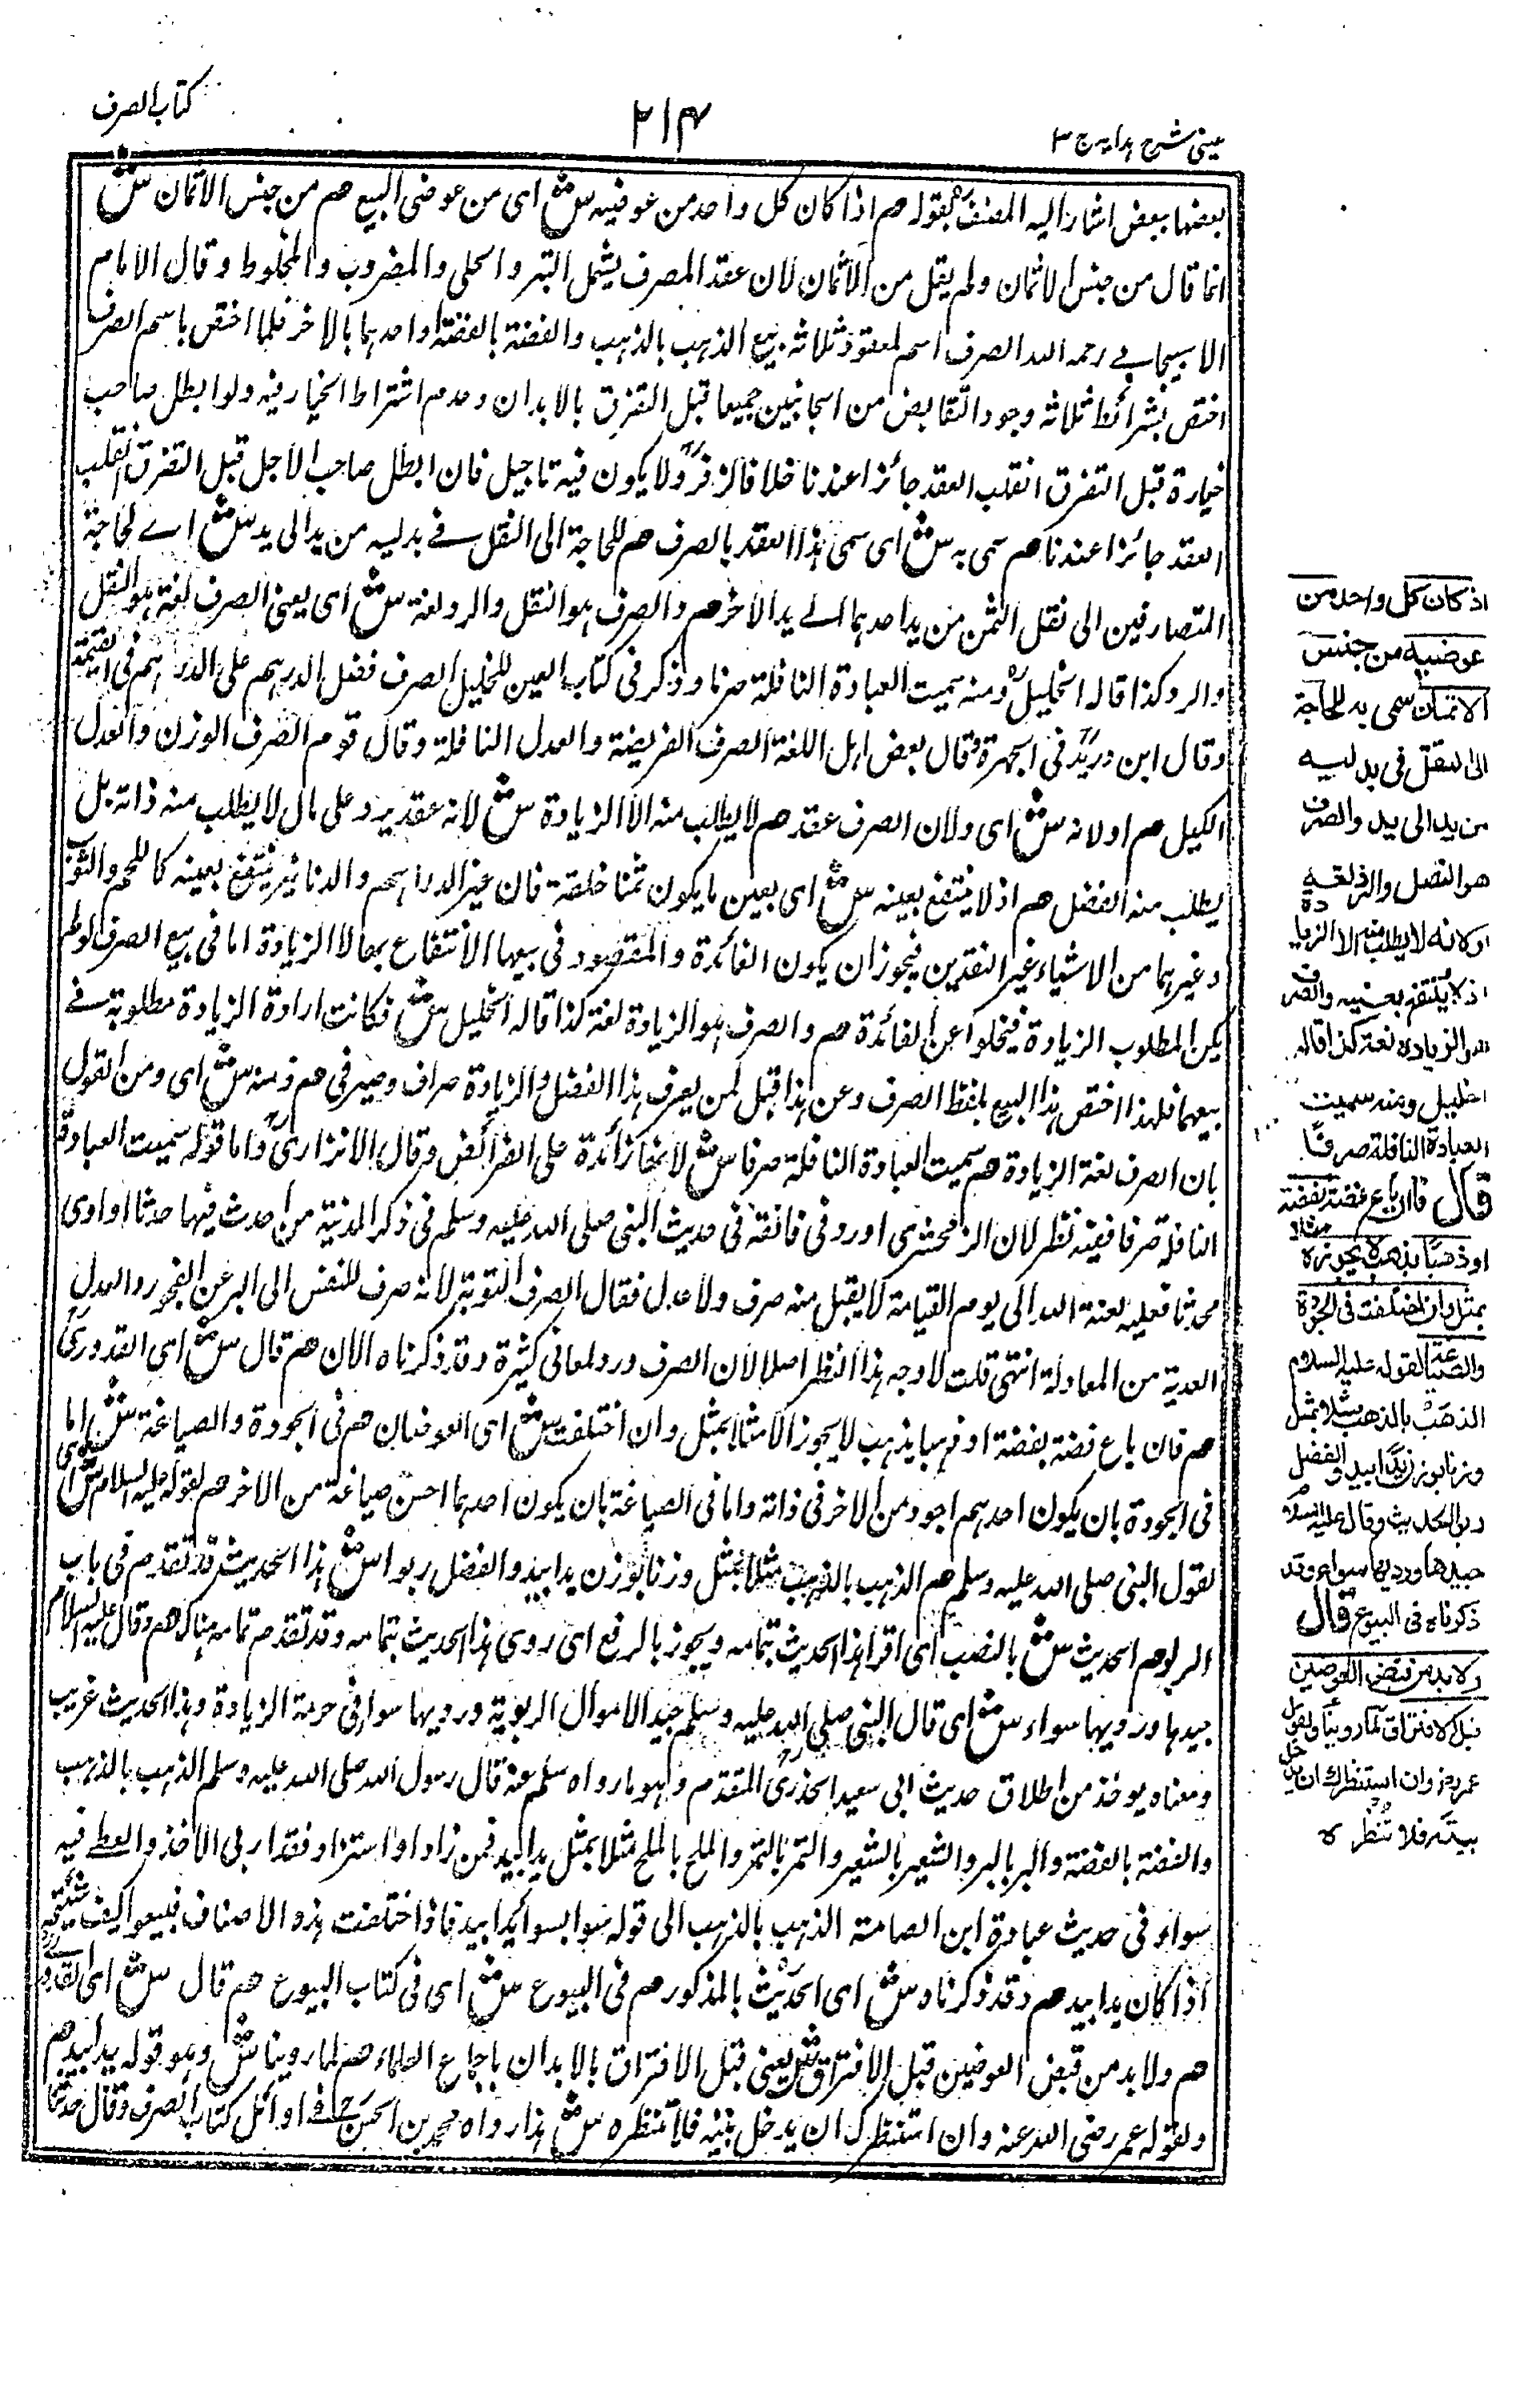 عینی شرح ہدایہ ج ۳
۲۱۴
کتاب الصرف
بعضہا ببعض اشار الیہ المصنفؒ بقولہ ھم اذا کان کل واحد من عوضیہ س ش ای من عوضی البیع ھم من جنس الاثمان س ش
انما قال من جنس الاثمان ولم یقل من الاثمان لان عقد الصرف یشمل التبر والحلی والمضروب والمخلوط وقال الامام
الاسبیجابے رحمہ اللہ الصرف اسم لعقود ثلاثۃ بیع الذہب بالذہب والفضۃ بالفضۃ او احدہما بالاخر فلما اختص باسم الصرف
اختص بشرائط ثلاثۃ وجود التقابض من الجانبین جمیعا قبل التفرق بالابدان وعدم اشتراط الخیار فیہ ولو ابطل صاحب
خیارہ قبل التفرق انقلب العقد جائزا عندنا خلافا لزفرؒ ولا یکون فیہ تاجیل فان ابطل صاحب الاجل قبل التفرق انقلب
العقد جائزا عندنا ھم سمی بہ س ش ای سمی ہذا العقد بالصرف ھم للحاجۃ الی النقل فے بدلیہ من ید الی ید س ش اے لحاجۃ
المتصارفین الی نقل الثمن من ید احدہما الے ید الاخر ھم والصرف ہو النقل والرد لغۃ س ش ای یعنی الصرف لغۃ ہو النقل
والرد وکذا قالہ الخلیلؒ ومنہ سمیت العبادۃ النافلۃ صرفا وذکر فی کتاب العین للخلیل الصرف فضل الدرہم علی الدرہم فی القیمۃ
وقال ابن دریدؒ فی الجمہرۃ وقال بعض اہل اللغۃ الصرف الفریضۃ والعدل النافلۃ وقال قوم الصرف الوزن والعدل
الکیل ھم اولانہ س ش ای ولان الصرف عقد ھم لا یطلب منہ الا الزیادۃ س ش لانہ عقد یرد علی مال لا یطلب منہ ذاتہ بل
یطلب منہ الفضل ھم اذ لا ینتفع بعینہ س ش ای بعین ما یکون ثمنا خلقۃ فان غیر الدراہم والدنانیر ینتفع بعینہ کاللحم والثوب
وغیرہما من الاشیاء غیر النقدین فیجوز ان یکون الفائدۃ والمقصود فی بیعہا الانتفاع بہا لا الزیادۃ اما فی بیع الصرف لو لم
یکن المطلوب الزیادۃ فیخلوا عن الفائدۃ ھم والصرف ہو الزیادۃ لغۃ کذا قالہ الخلیل س ش فکانت ارادۃ الزیادۃ مطلوبۃ فے
بیعہما فلہذا اختص ہذا البیع بلفظ الصرف وعن ہذا قیل لمن یعرف ہذا الفضل والزیادۃ صراف وصیرفی ھم ومنہ س ش ای ومن القول
بان الصرف لغۃ الزیادۃ ھم سمیت العبادۃ النافلۃ صرفا س ش لانہا زائدۃ علی الفرائض وقال الاترازیؒ واما قولہ سمیت العبادۃ
النافلۃ صرفا ففیہ نظر لان الزمخشری اورد فی فائقہ فی حدیث النبی صلی اللہ علیہ وسلم فی ذکر المدینۃ من احدث فیہا حدثا او اوی
محدثا فعلیہ لعنۃ اللہ الی یوم القیامۃ لا یقبل منہ صرف ولا عدل فقال الصرف التوبۃ لانہ صرف للنفس الی البر عن الفجور والعدل
الفدیۃ من المعادلۃ انتہی قلت لا وجہ ہذا النظر اصلا لان الصرف ورد لمعانی کثیرۃ وقد ذکرناہ الان ھم قال س ش ای القدوریؒ
ھم فان باع فضۃ بفضۃ او ذہبا بذہب لا یجوز الا مثلا بمثل وان اختلفت س ش ای العوضان ھم فی الجودۃ والصیاغۃ س ش اما
فی الجودۃ بان یکون احدہم اجود من الاخر فی ذاتہ واما فی الصیاغۃ بان یکون احدہما احسن صیاغۃ من الاخر ھم لقولہ علیہ السلام س ش ای
لقول النبی صلی اللہ علیہ وسلم ھم الذہب بالذہب مثلا بمثل وزنا بوزن یدا بید والفضل ربوا س ش ہذا الحدیث قد تقدم فی باب
الربوا ھم الحدیث س ش بالنصب ای اقرا ہذا الحدیث بتمامہ ویجوز بالرفع ای روی ہذا الحدیث بتمامہ وقد تقدم تمامہ ہناک ھم وقال علیہ السلام
جیدہا وردیہا سواء س ش ای قال النبی صلی اللہ علیہ وسلم جید الاموال الربویۃ وردیہا سواء فی حرمۃ الزیادۃ وہذا الحدیث غریب
ومعناہ یوخذ من اطلاق حدیث ابی سعید الخدریؓ المقدم وہو ما رواہ مسلم عنہ قال رسول اللہ صلی اللہ علیہ وسلم الذہب بالذہب
والفضۃ بالفضۃ والبر بالبر والشعیر بالشعیر والتمر بالتمر والملح بالملح مثلا بمثل یدا بید فمن زاد او استزاد فقد اربی الاخذ والمعطے فیہ
سواء فی حدیث عبادۃ ابن الصامتہ الذہب بالذہب الی قولہ سوا بسوا یدا بید فاذا اختلفت ہذہ الاصناف فبیعوا کیف شئتم
اذا کان یدا بید ھم وقد ذکرناہ س ش ای الحدیث بالمذکور ھم فی البیوع س ش ای فی کتاب البیوع ھم قال س ش ای القدوریؒ
ھم ولا بد من قبض العوضین قبل الافتراق س ش یعنی قبل الافتراق بالابدان باجماع العلماء ھم لما روینا س ش وہو قولہ یدا بید ھم
ولقولہ عمر رضی اللہ عنہ وان استنظرک ان یدخل بیتہ فلا تنظرہ س ش ہذا رواہ محمد بن الحسن فے اوائل کتاب الصرف وقال حدثنا
اذ کان کل واحد من
عوضیہ من جنس
الاثمان سمی بہ للحاجۃ
الی النقل فی بدلیہ
من ید الی ید والصرف
ھو النقل والرد لغۃ
اولانہ لا یطلب منہ الا الزیادۃ
اذ لا ینتفع بعینہ والصرف
ھو الزیادہ لغۃ کذا قالہ
الخلیل ومنہ سمیت
العبادۃ النافلۃ صرفًا
قال فان باع فضۃ بفضۃ
او ذھبًا بذھب لا یجوز الا مثلا
بمثل وان اختلفت فی الجودۃ
والصیاغۃ لقولہ علیہ السلام
الذھب بالذھب مثلا بمثل
وزنا بوزن یدا بید والفضل
ربوا الحدیث وقال علیہ السلام
جیدھا وردیہا سواء وقد
ذکرناہ فی البیوع قال
ولا بد من قبض العوضین
قبل الافتراق لما روینا ولقول
عمر رض وان استنظرک ان یدخل
بیتہ فلا تنظرہ